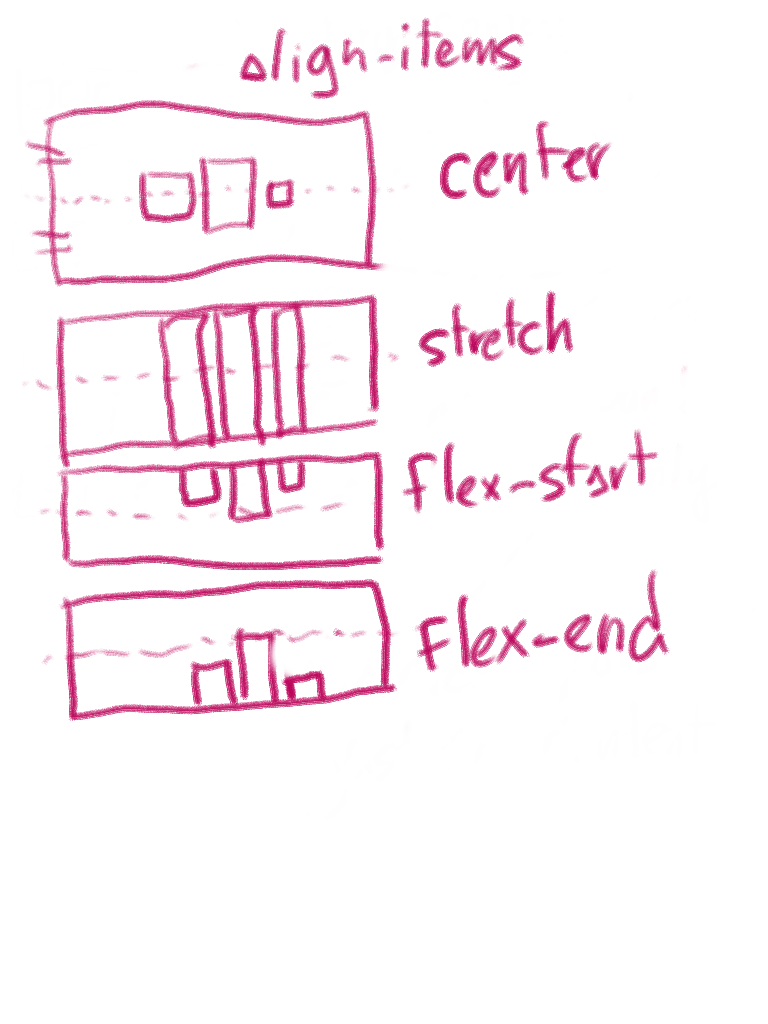 align-items
center
stretch
flex-start
flex-end